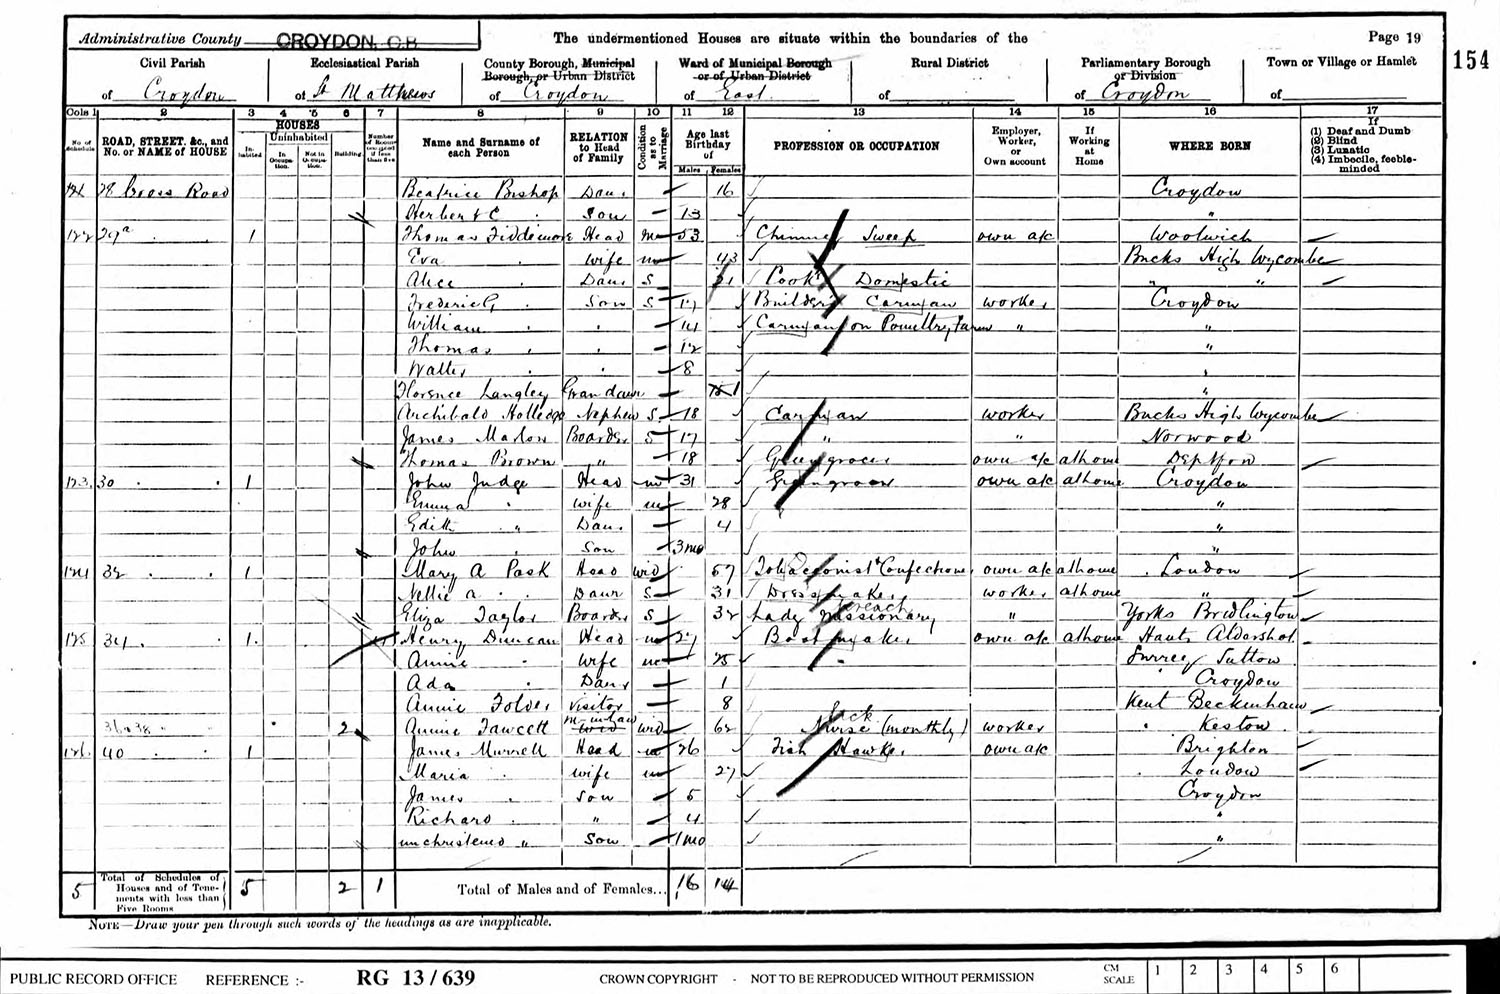 Administrative County CROYDON, C.B. The undermentioned Houses are situate within the boundaries of the Page 19
154
Civil Parish Ecclesiastical Parish County Borough, Municipal Borough, or Urban District Ward of Municipal Borough or of Urban District Rural District Parliamentary Borough or Division Town or Village or Hamlet
of Croydon of St Matthews of Croydon of East of of Croydon of
Cols 1 2 3 4 5 6 7 8 9 10 11 12 13 14 15 16 17
No. of Schedule ROAD, STREET, &c., and No. or NAME of HOUSE HOUSES In-habited Uninhabited In Occupa-tion. Not in Occupa-tion. Building Number of Rooms occupied if less than five Name and Surname of each Person RELATION to Head of Family Condition as to Marriage Age last Birthday of Males Females PROFESSION OR OCCUPATION Employer, Worker, or Own account If Working at Home WHERE BORN If (1) Deaf and Dumb (2) Blind (3) Lunatic (4) Imbecile, feeble-minded
121 28 Cross Road Beatrice Bishop Daur 16 Croydon
Herbert C Son 13 "
122 29a 1 Thomas Fiddemore Head m 53 Chimney Sweep own a/c Woolwich
Eva wife m 43 Bucks High Wycombe
Alice Daur S 21 Cook Domestic " "
Frederic G Son S 17 Builders Carman worker Croydon
William " 14 Carman on Poultry Farm " "
Thomas " 12 "
Walter " 8 "
Florence Langley Grandaur 1 "
Archibald Holledge Nephew S 18 Carman worker Bucks High Wycombe
James Marlow Boarder S 17 " " Norwood
Thomas Brown " 18 Greengrocer own a/c at home Deptford
123 30 1 John Judge Head m 31 Greengrocer own a/c at home Croydon
Emma wife m 28 "
Edith " Daur 4 "
John Son 3 mo "
124 32 1 Mary A Pask Head wid 57 Tobacconist & Confectioner own a/c at home London
Nellie A Daur S 31 Dressmaker worker at home "
Eliza Taylor Boarder S 32 Lady Missionary preach " Yorks Bridlington
125 34 1 4 Henry Duncan Head m 27 Boot maker own a/c at home Hants Aldershot
Annie wife m 25 Surrey Sutton
Ada Daur 1 Croydon
Annie Folder visitor 8 Kent Beckenham
36 & 38 2 Annie Fawcett m-in-law wid 62 Sick Nurse (monthly) worker Keston
126 40 1 James Murrell Head m 26 Fish Hawker own a/c Brighton
Maria wife m 27 London
James Son 5 Croydon
Richard " 4 "
unchristened " Son 1 mo "
5 Total of Schedules of Houses and of Tene-ments with less than Five Rooms 5 2 1 Total of Males and of Females... 16 14
NOTE—Draw your pen through such words of the headings as are inapplicable.
PUBLIC RECORD OFFICE REFERENCE :- RG 13/639 CROWN COPYRIGHT - NOT TO BE REPRODUCED WITHOUT PERMISSION CM SCALE 1 2 3 4 5 6